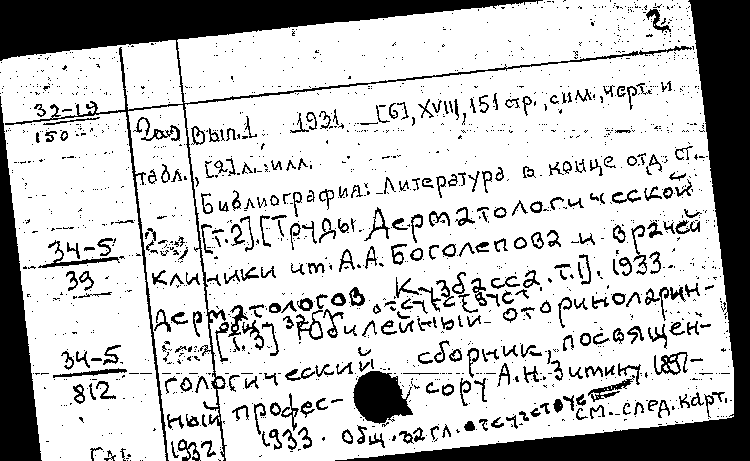 2
32-19
150
Вып.1 1931. [6], XVIII, 151 стр., илл., черт. и
табл., [2] л. илл.
Библиография: Литература в конце отд. ст.
34-5
39
[Т.2]. [Труды Дерматологической
клиники им. А.А. Боголепова и врачей
дерматологов Кузбасса. т.I]. 1933.
общ. 32 гл. отсутствует
34-5
812
[Т.3] Юбилейный оториноларин-
гологический сборник, посвящен-
ный профес- сору А.Н. Зимину. 1897-
1932. 1933. общ. 32 гл. отсутствует
см. след. карт.